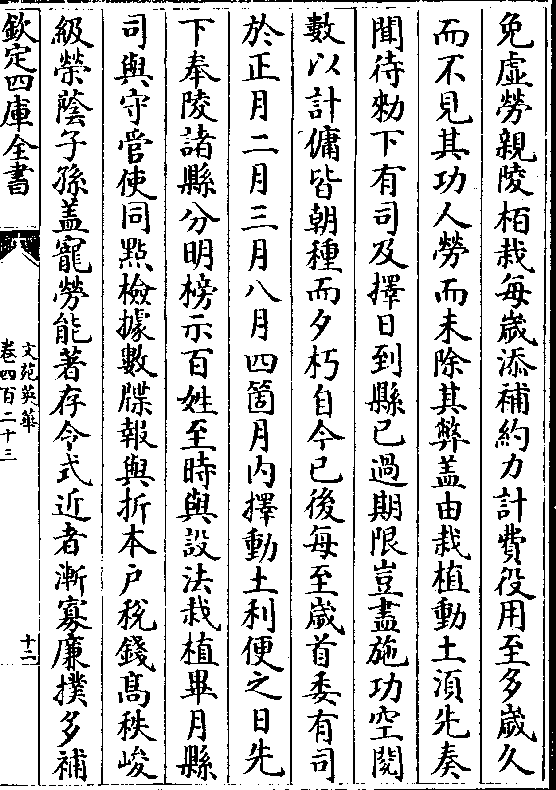 免虛勞親陵栢栽每歲添補約力計費役用至多歲久
而不見其功人勞而未除其弊盖由栽植動土湏先奏
聞待勑下有司及擇日到縣已過期限豈盡施功空閱
數以計傭皆朝種而夕朽自今已後每至歲首委有司
於正月二月三月八月四箇月内擇動土利便之日先
下奉陵諸縣分明榜示百姓至時與設法栽植畢月縣
司與守管使同㸃檢據數牒報與折本户稅錢髙秩峻
級榮蔭子孫盖寵勞能著存令式近者漸寡廉撲多補
欽定四庫全書
文苑英華
卷四百二十三
十二